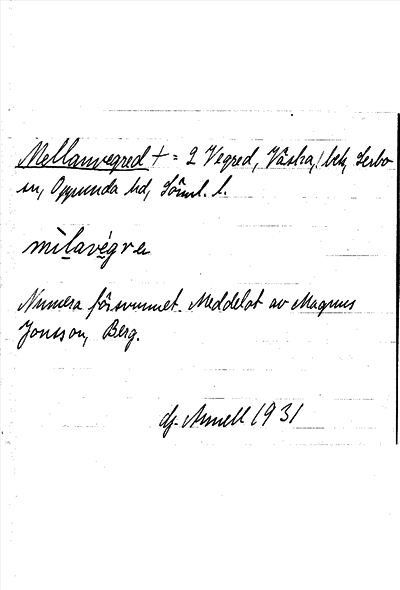 Mellanvegred + = 2 Vegred, Västra, bek, Lerbo
sn, Oppunda hd, Söml. l.
mìlavégre
Numera försvunnet. Meddelat av Magnus
Jonsson, Berg.
Annell 1931